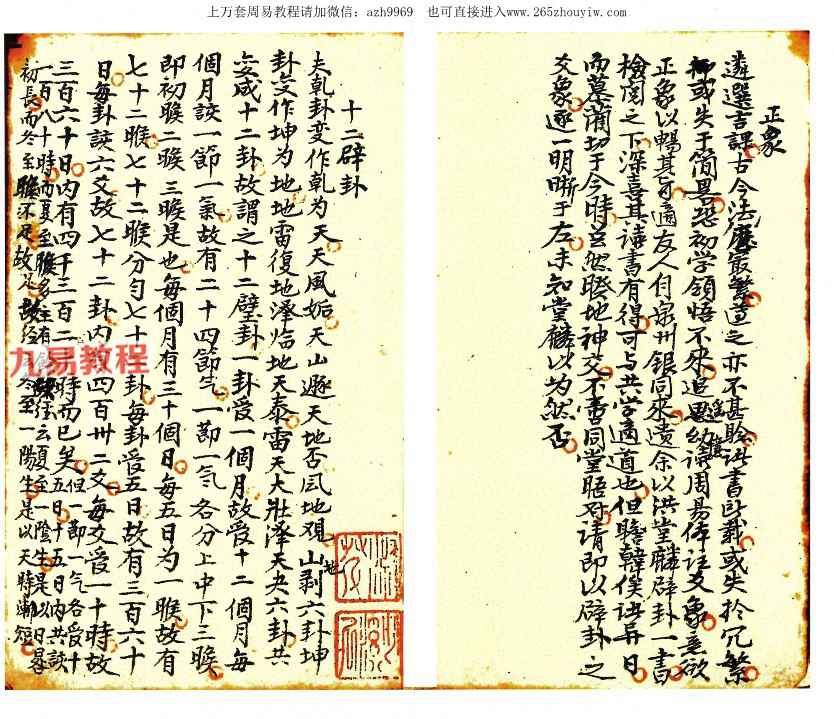 上万套周易教程请加微信：azh9969　也可直接进入www.265zhouyiw.com
正象
遴選言課古今法歷最繁道之亦不甚聆此書所載或失於冗繁
抑或失于簡畧恐初学領悟不來追思幼讀周易倖註爻象無欲
正象以暢其可適友人自泉州銀同來遺余以洪堂麟辟卦一書
檢閱之下深喜其讀書有得可与共学適道也但瞻韓僕詠昇日
而慕藺切于今時茲然暌地神交不啻同堂晤對請即以辟卦之
爻象逐一明晰于左未知堂麟以为然否
十二辟卦
夫乾卦变作乾为天天風姤天山遯天地否風地观山地剥六卦坤
卦变作坤为地地雷復地澤臨地天泰雷天大壯澤天夬六卦共
变成十二卦故謂之十二壁卦一卦受一個月故受十二個月每
個月該一節一氣故有二十四節气一節一氣各分上中下三候
即初候二候三候是也每個月有三十個日每五日为一候故有
七十二候七十二候分勻七十二卦每卦受五日故有三百六十
日每卦該六爻故七十二卦内四百卅二爻每爻受一十時故
三百六十日内有四千三百二時而已矣但一節一气各受十
五日十五日内共該
一百八十時而夏至候多主有
経云夏至一陰生是以日晷
初長而冬至候不足故
冬至一陽生是以天時漸短
九易教程